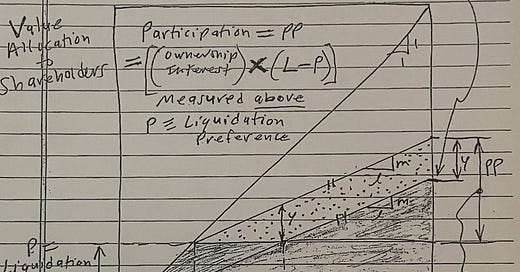 Value
Allocation
to
Shareholders
Participation = PP
= [(Ownership Interest) X (L-P)]
Measured above
P ≡ Liquidation
Preference
1
1
m
1
y
m
1
y
PP
P =
Liquidation